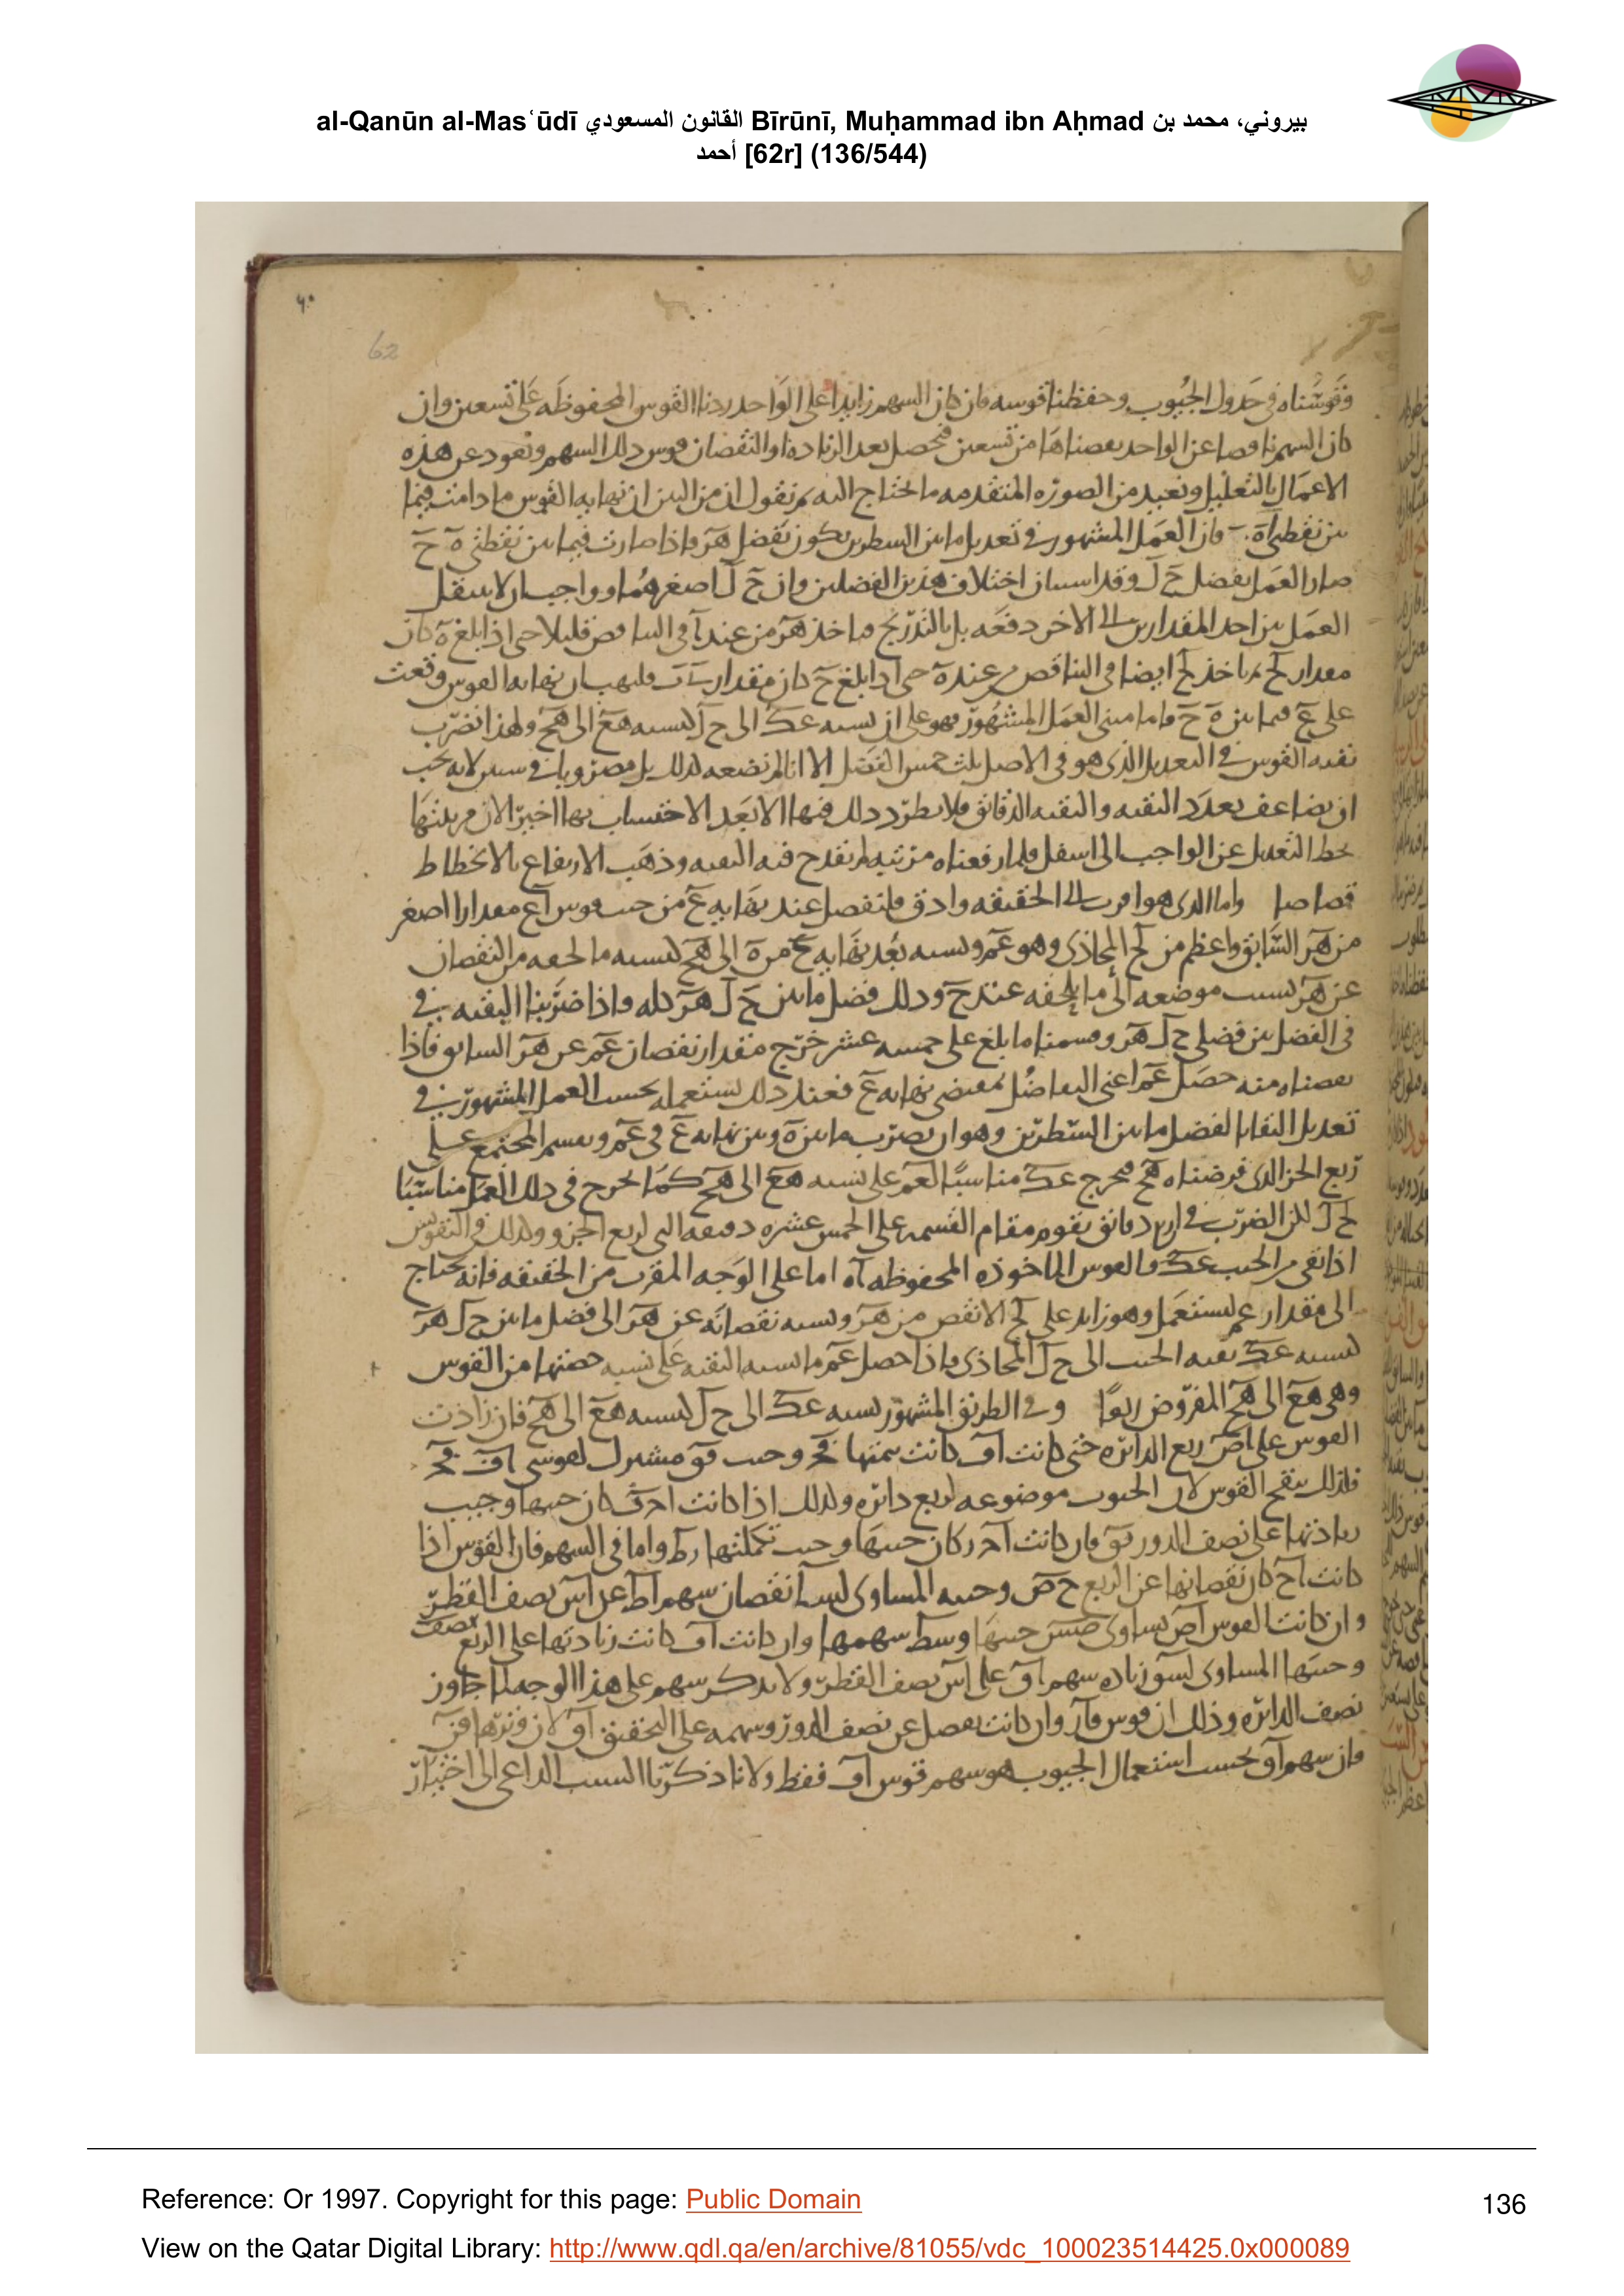 al-Qanūn al-Masʿūdī القانون المسعودي Bīrūnī, Muḥammad ibn Aḥmad بيروني، محمد بن
أحمد [62r] (136/544)
٦٠
62
وقوسناه في جدول الجيوب وحفظنا قوسه فان كان السهم زايدا على الواحد زدنا القوس المحفوظه على تسعين وان
كان السهم ناقصا عن الواحد نقصناها من تسعين فيحصل بعد الزيادة او النقصان قوس ذلك السهم ونعود عن هذه
الاعمال بالتعليل ونعيد من الصوره المتقدمه ما نحتاج اليه ثم نقول ان من البين ان نهايه القوس ما دامت فيما
بين نقطتي آ ه فان العمل المشهور في تعديل ما بين السطرين يكون بفضل هر فاذا صارت فيما بين نقطتي ه ح
صار العمل بفضل ح ل وقد استبان اختلاف هذين الفضلين وان ح ل اصغرهما وواجب ان لا ينتقل
العمل من احد المقدارين الى الاخر دفعه بل بالتدريج فياخذ هر من عند آ في التناقص قليلا حتى اذا بلغ ه كان
على ع فيما بين ه ح واما مبنى العمل المشهور فهو على ان نسبه عك الى ح ل كنسبه هع الى هح ولهذا نضرب
بقيه القوس في التعديل الذي هو في الاصل ثلث خمس الفضل الا انا لم نضعه كذلك بل مضروبا في ستين لانه يجب
ان يضاعف بعدد البقيه والبقيه الدقائق فلا يطرد ذلك فيها الا بعد الاحتساب بها اخيرا لان مرتبتها
تحط التعديل عن الواجب الى اسفل فلما رفعناه مرتبه لم تقدح فيه البقيه وذهب الارتفاع بالانحطاط
قصاصا واما الذي هو اقرب الى الحقيقه وادق فلنفصل عند نهايه ع من جيب قوس آع مقدارا اصغر
من هر السابق واعظم من لح المحاذي وهو عم ونسبه بعد نهايه ع من ه الى هح كنسبه ما لحقه من النقصان
عن هر بسبب موضعه الى ما يلحقه عند ح وذلك فضل ما بين ح ل هر كله واذا ضربنا البقيه في
في الفضل بين فضلي ح ل هر وقسمنا ما بلغ على خمسه عشر خرج مقدار نقصان عم عن هر السابق فاذا
نقصناه منه حصل عم اعني التفاضل بمقتضى نهايه ع فعند ذلك نستعمله بحسب العمل المشهور في
تعديل البقايا لفضل ما بين السطرين وهو ان نضرب ما بين ه وبين نهايه ع في عم ونقسم المجتمع على
ربع الجزء الذي فرضناه هح فيخرج عك مناسبا لعم على نسبه هع الى هح كما يخرج في ذلك العمل مناسبا
ل ح ل لكن الضرب في اربع دقائق يقوم مقام القسمه على الخمس عشره دقيقه التي لربع الجزء وكذلك في التقويس
اذا بقي من الجيب عك والقوس الماخوذه المحفوظه آه اما على الوجه المقرب من الحقيقه فانه يحتاج
الى مقدار عم ليستعمل وهو زايد على لح الانقص من هر ونسبه نقصانه عن هر الى فضل ما بين ح ل هر
كنسبه عك بقيه الجيب الى ح ل المحاذي فاذا حصل عم ناسبه البقيه على نسبه حصتها من القوس
وهي هع الى هح المفروض ربعا وفي الطريق المشهور نسبه عك الى ح ل كنسبه هع الى هح فان زادت
القوس على اص ربع الدائره حتى كانت اف كانت تتمتها فج وجيب فق مشترك لقوسي اف فج
فلذلك ننقح القوس لان الجيوب موضوعه لربع دائره وكذلك اذا كانت اجف كان جيبها وجيب
زيادتها على نصف الدور فق فان كانت آجر كان جيبها وجيب تكملتها رط واما في السهم فان القوس اذا
كانت آح كان نقصانها عن الربع ح ص وجيبه المساوي لسط نقصان سهم اط عن آس نصف القطر
وان كانت القوس آص تساوى صس جيبها وسط سهمها وان كانت اف كانت زيادتها على الربع نصف
وجيبها المساوي لسق زياده سهم اق على آس نصف القطر ولا يذكر سهم على هذا الوجه لما جاوز
نصف الدائره وذلك ان قوس فآر وان كانت تفصل عن نصف الدور وسهمه على التحقيق اق لان وترها فق
فان سهم آق بحسب استعمال الجيوب هو سهم قوس آف فقط ولانا ذكرنا السبب الداعي الى اختيار
Reference: Or 1997. Copyright for this page: Public Domain
136
View on the Qatar Digital Library: http://www.qdl.qa/en/archive/81055/vdc_100023514425.0x000089